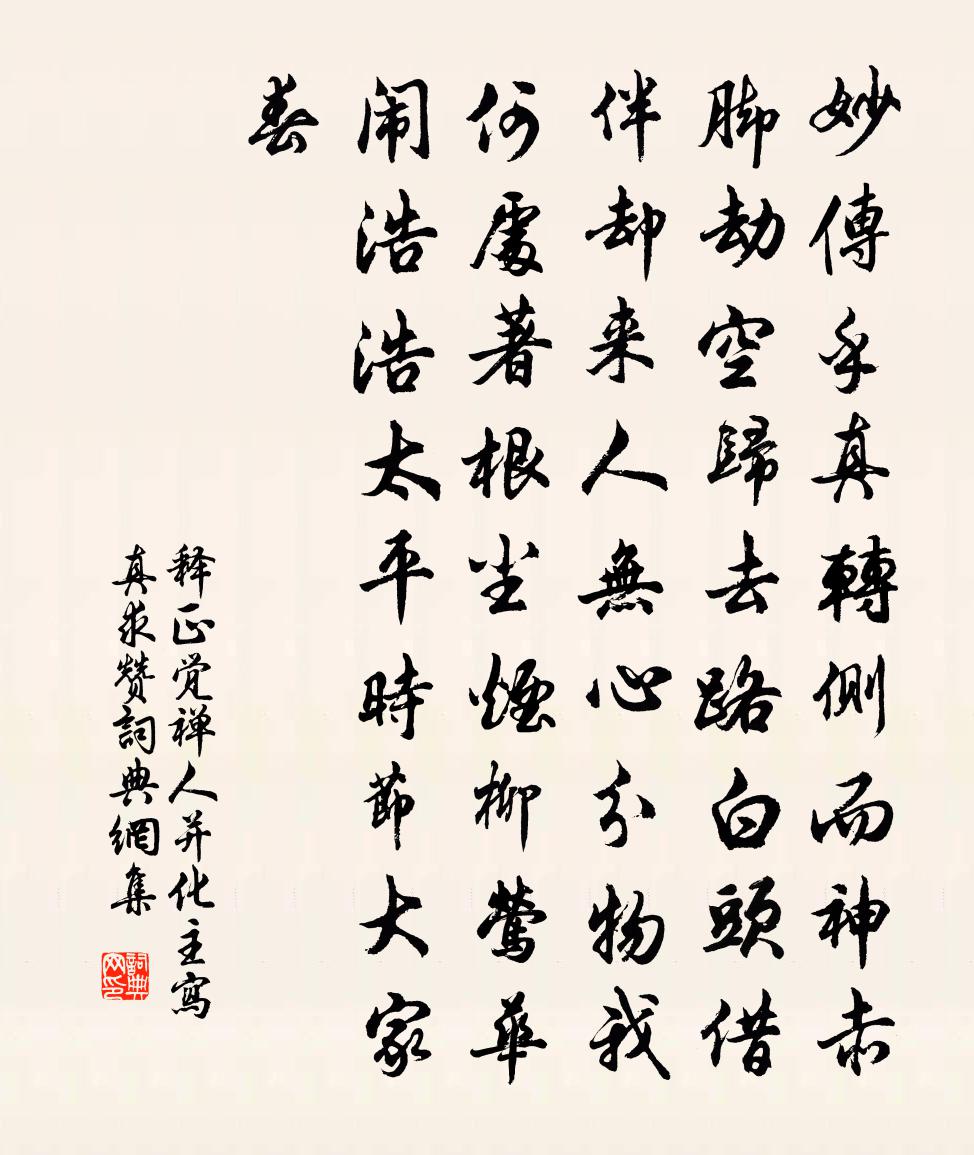 妙傳乎真轉側而神赤
脚劫空歸去路白頭借
伴却来人無心分物我
何處著根尘煙柳鶯華
闹浩浩太平時節大家
春
释正觉禅人并化主寫
真求赞詞典網集
詞典网印